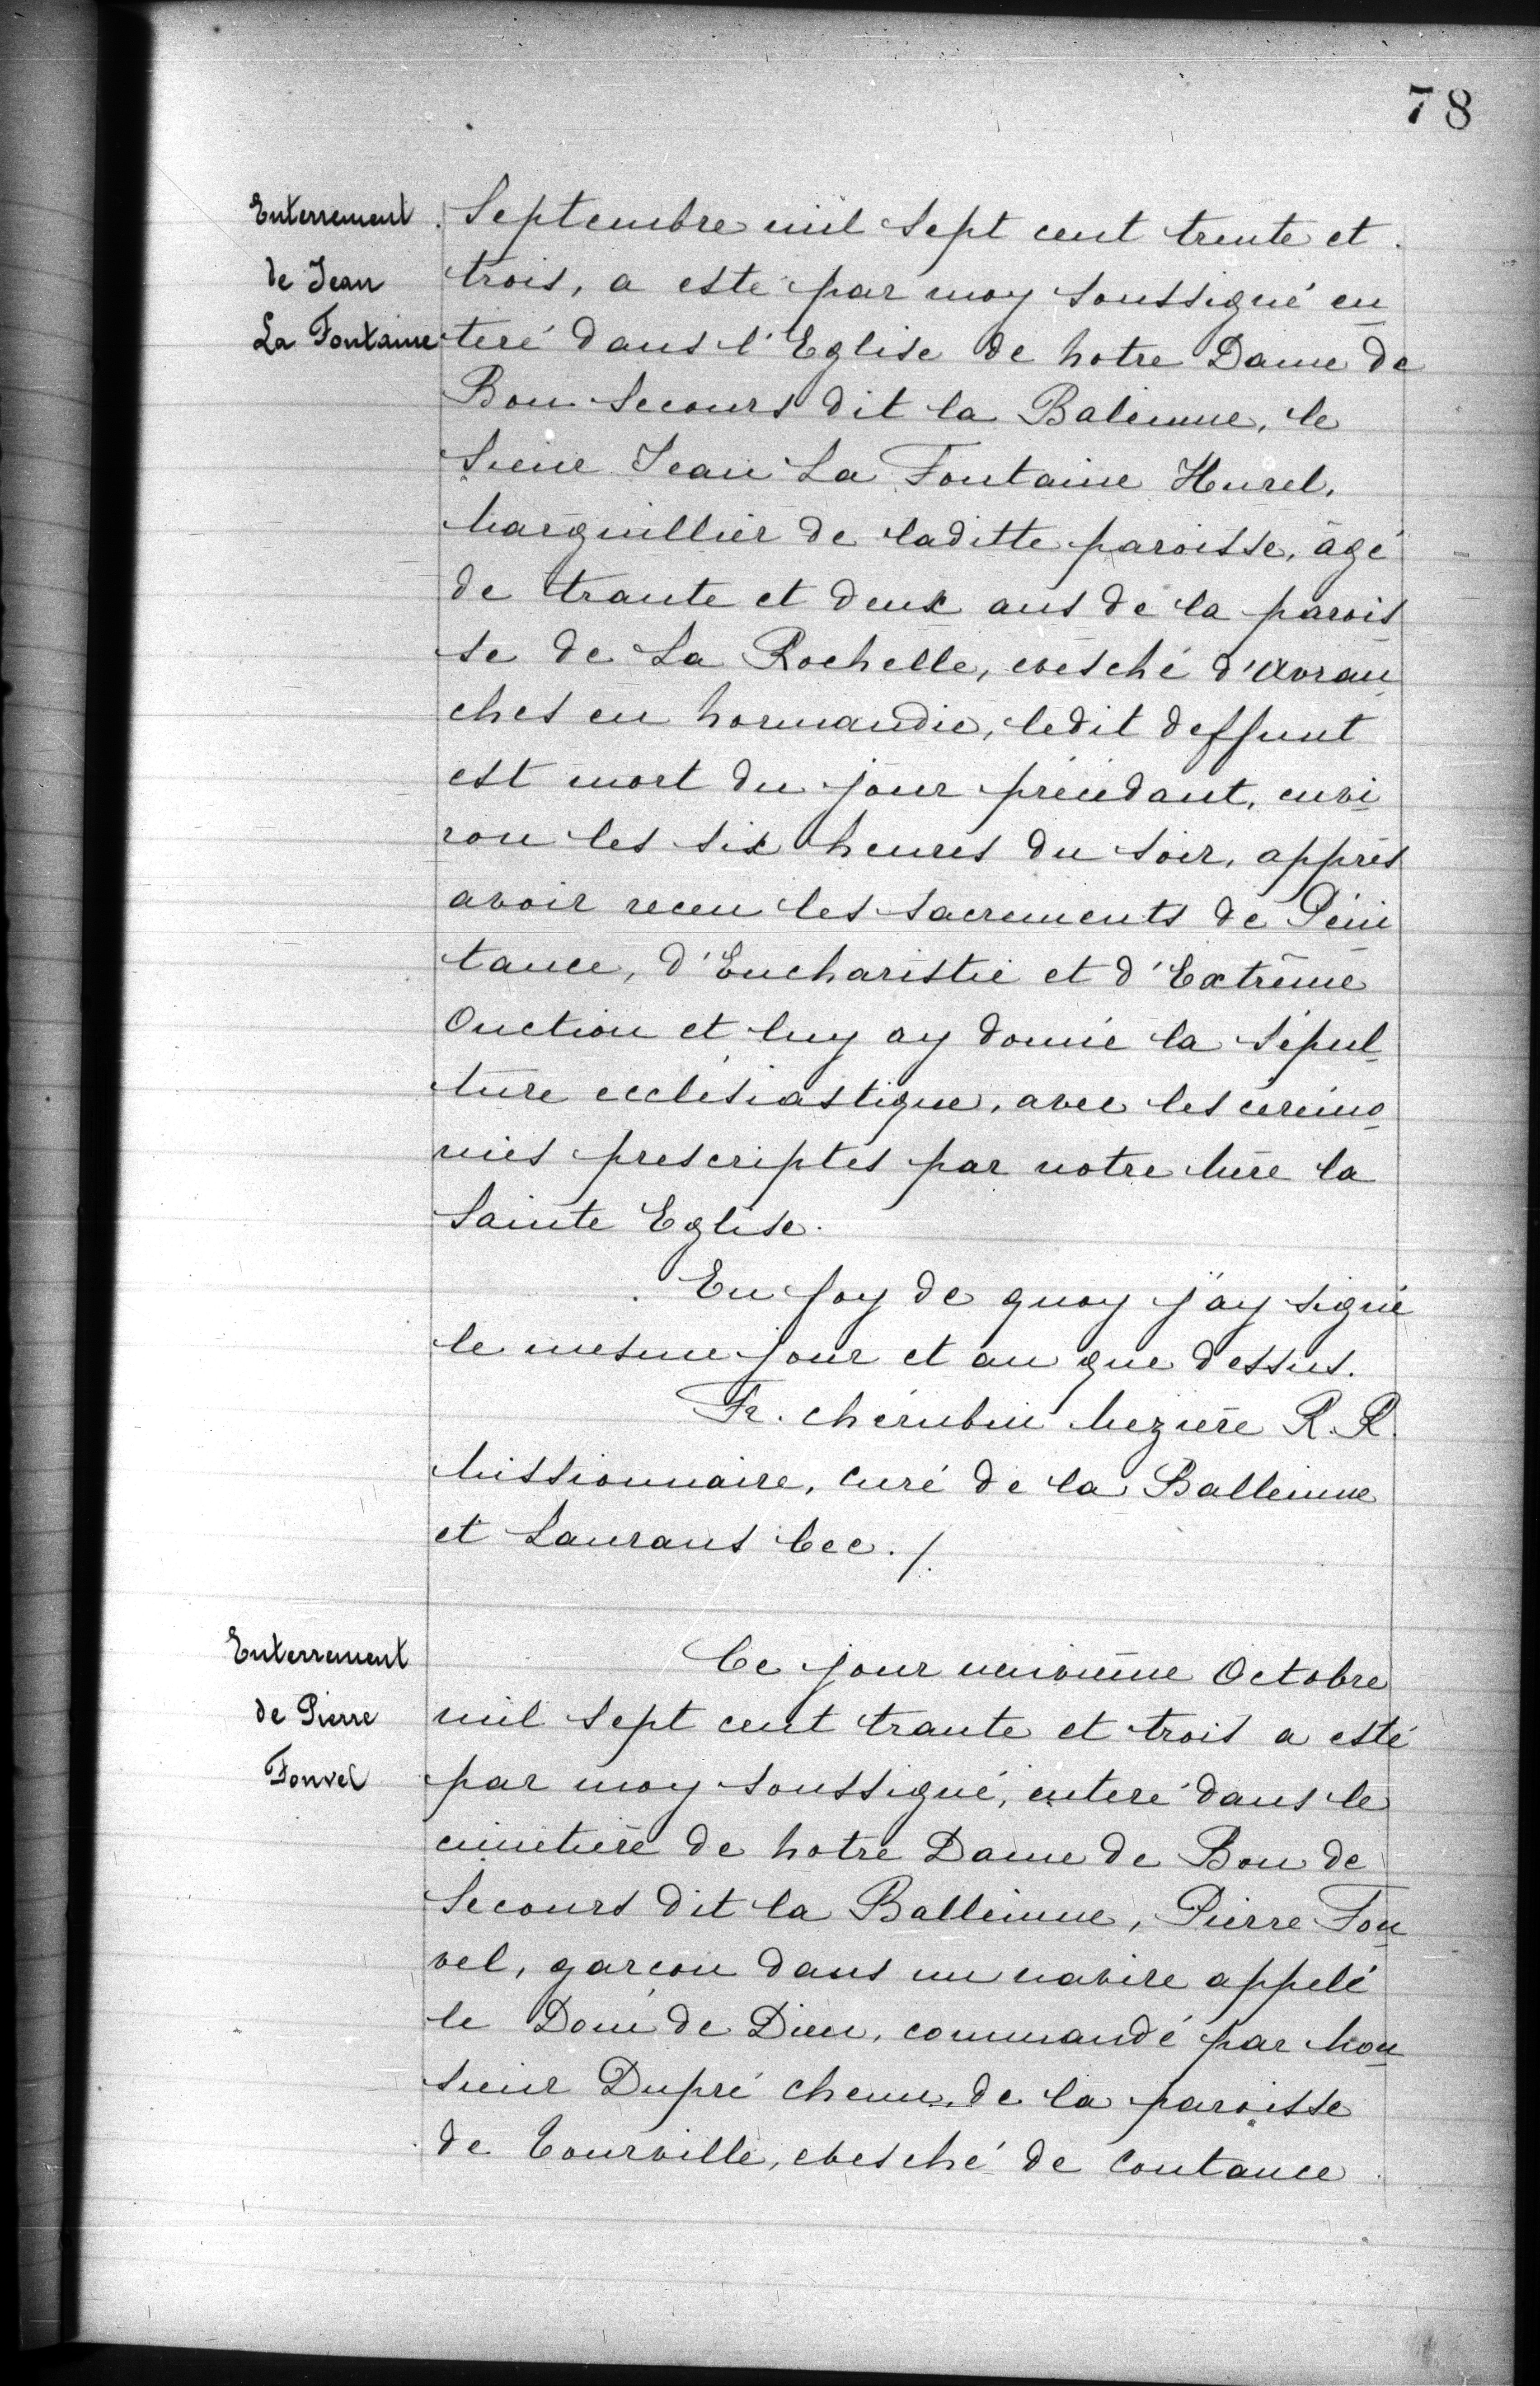 78
Enterrement
de Jean
La Fontaine
Septembre mil sept cent trente et
trois, a esté par moy soussigné en
teré dans l'Eglise de Notre Dame de
Bon Secours dit la Baleinne, le
Sieur Jean La Fontaine Hurel,
Marguillier de laditte paroisse, âgé
de trante et deux ans de la parois
se de La Rochelle, evesché d'Avran
ches en Normandie, ledit deffunt
est mort du jour précédant, envi
ron les six heures du soir, apprés
avoir receu les sacrements de Péni
tance, d'Eucharistie et d'Extrême
Onction et luy ay donné la sépul
ture ecclésiastique, avec les cérémo
nies prescriptes par notre Mère la
Sainte Eglise.
En foy de quoy j'ay signé
le mesme jour et an que dessus.
Fr. Chérubin Mezière R. R.
Missionnaire, Curé de la Balleinne
et Laurans bec. /.
Enterrement
de Pierre
Fonvel
Ce jour neuvième Octobre
mil sept cent trante et trois a esté
par moy soussigné, enteré dans le
cimetière de Notre Dame de Bon de
Secours dit la Balleinne, Pierre Fon
vel, garcon dans un navire appelé
le Doné de Dieu, commandé par Mon
sieur Dupré Chenu, de la paroisse
de Tourville, evesché de Coutance